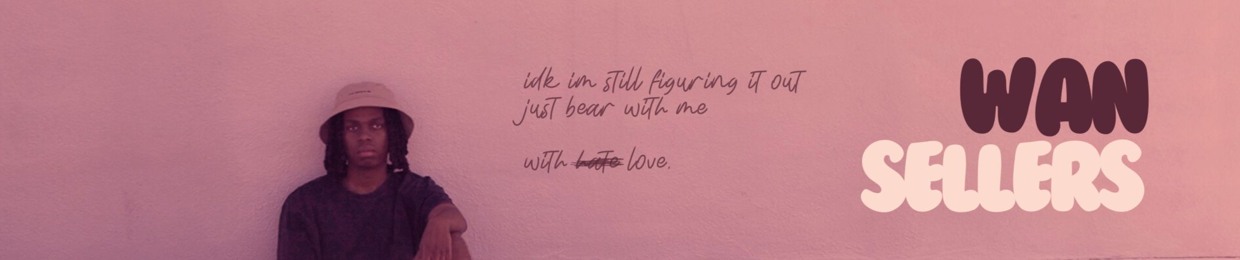 idk im still figuring it out
just bear with me
with hate love.
WAN
SELLERS